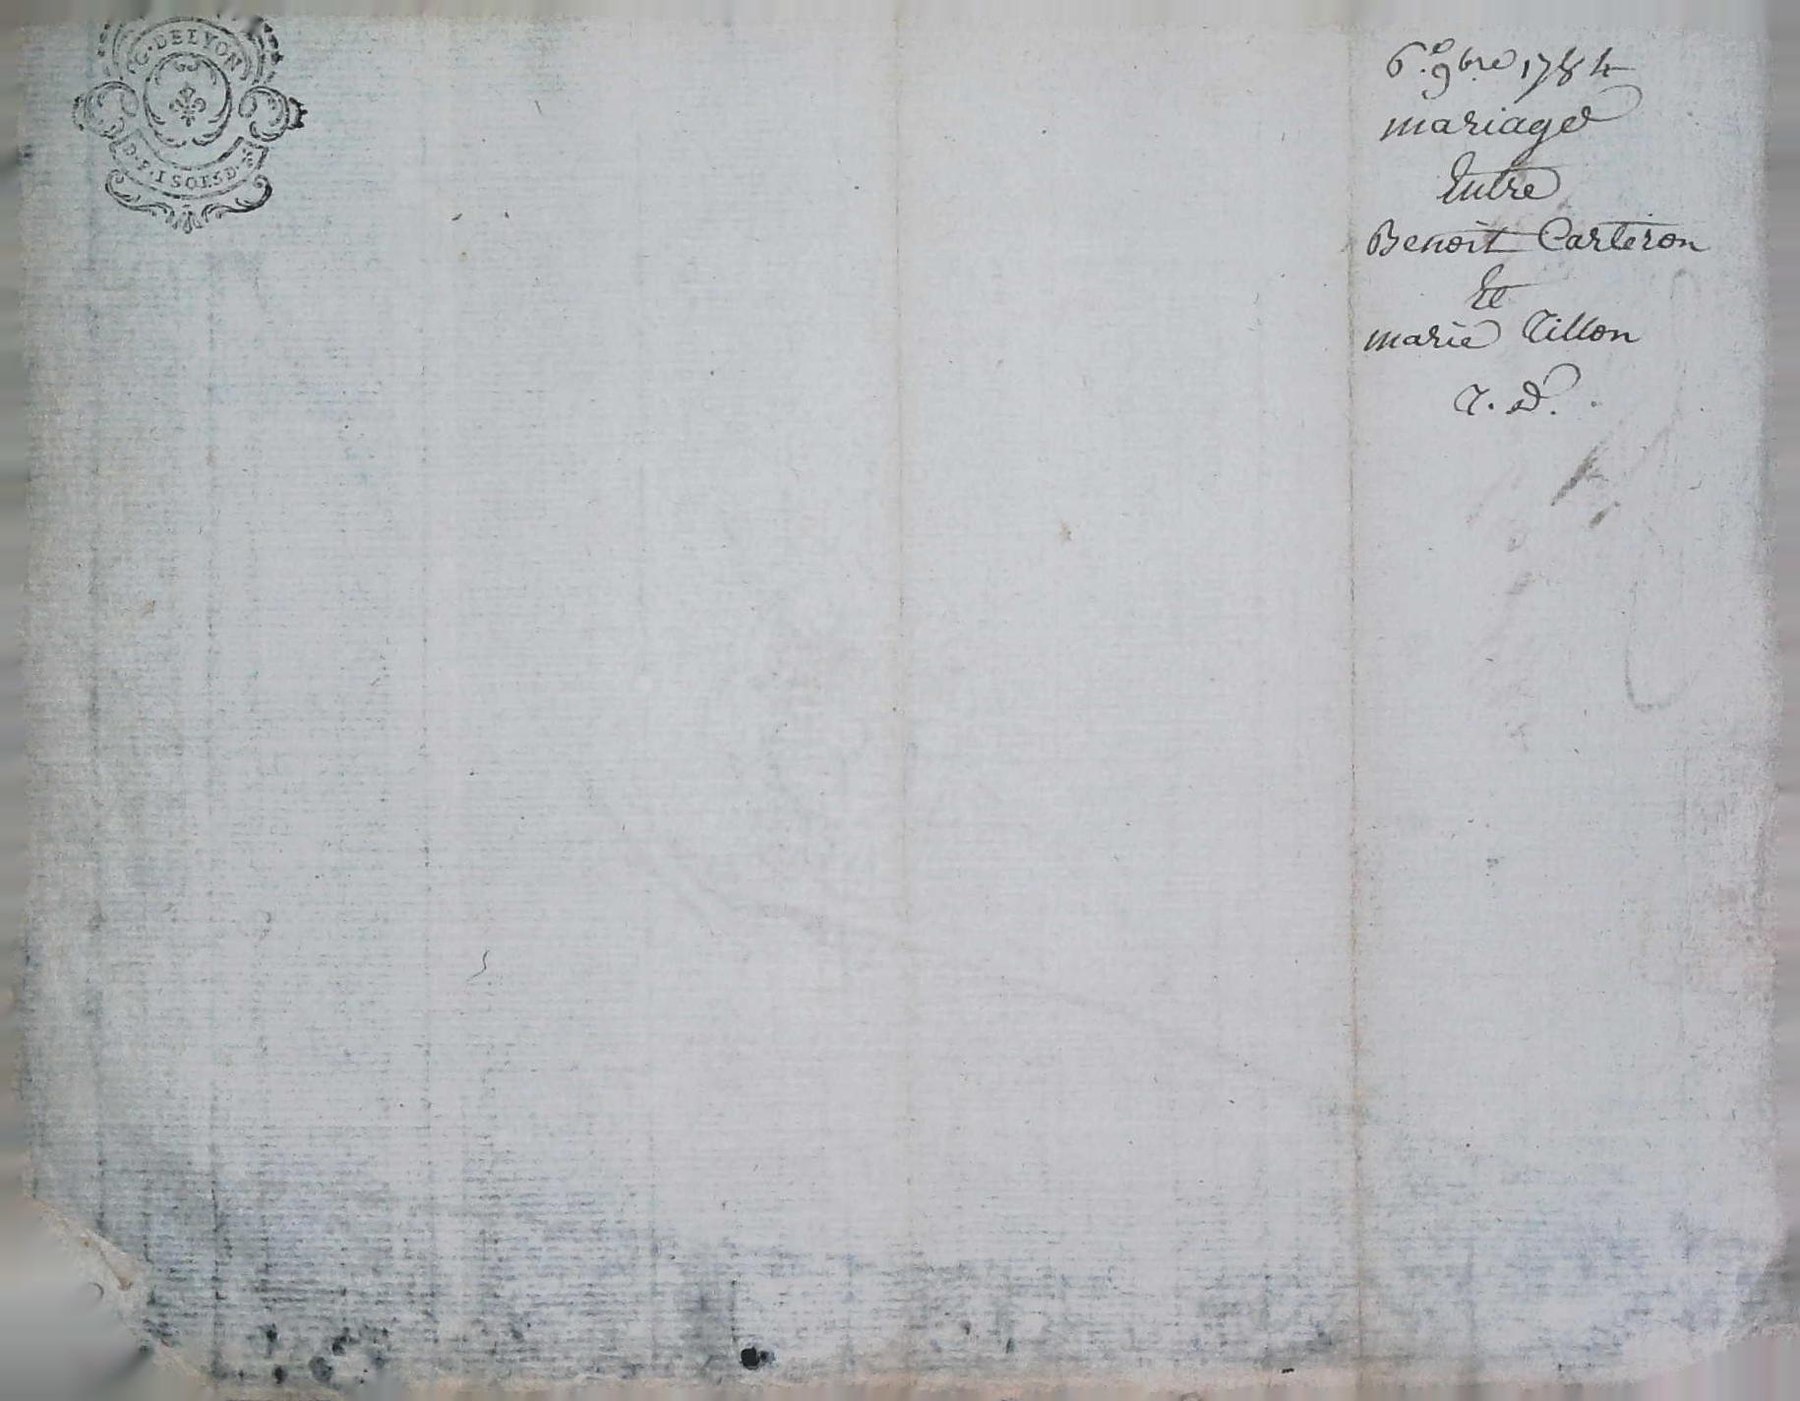 G. DE LYON
D. P. 1 SOL 8 D.
6.e 9bre 1784
mariage
Entre
Benoit Carteron
Et
marie Tillon